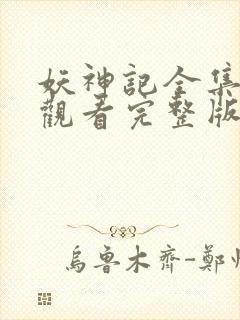 妖神記全集
觀看完整版
烏魯木齊-鄭